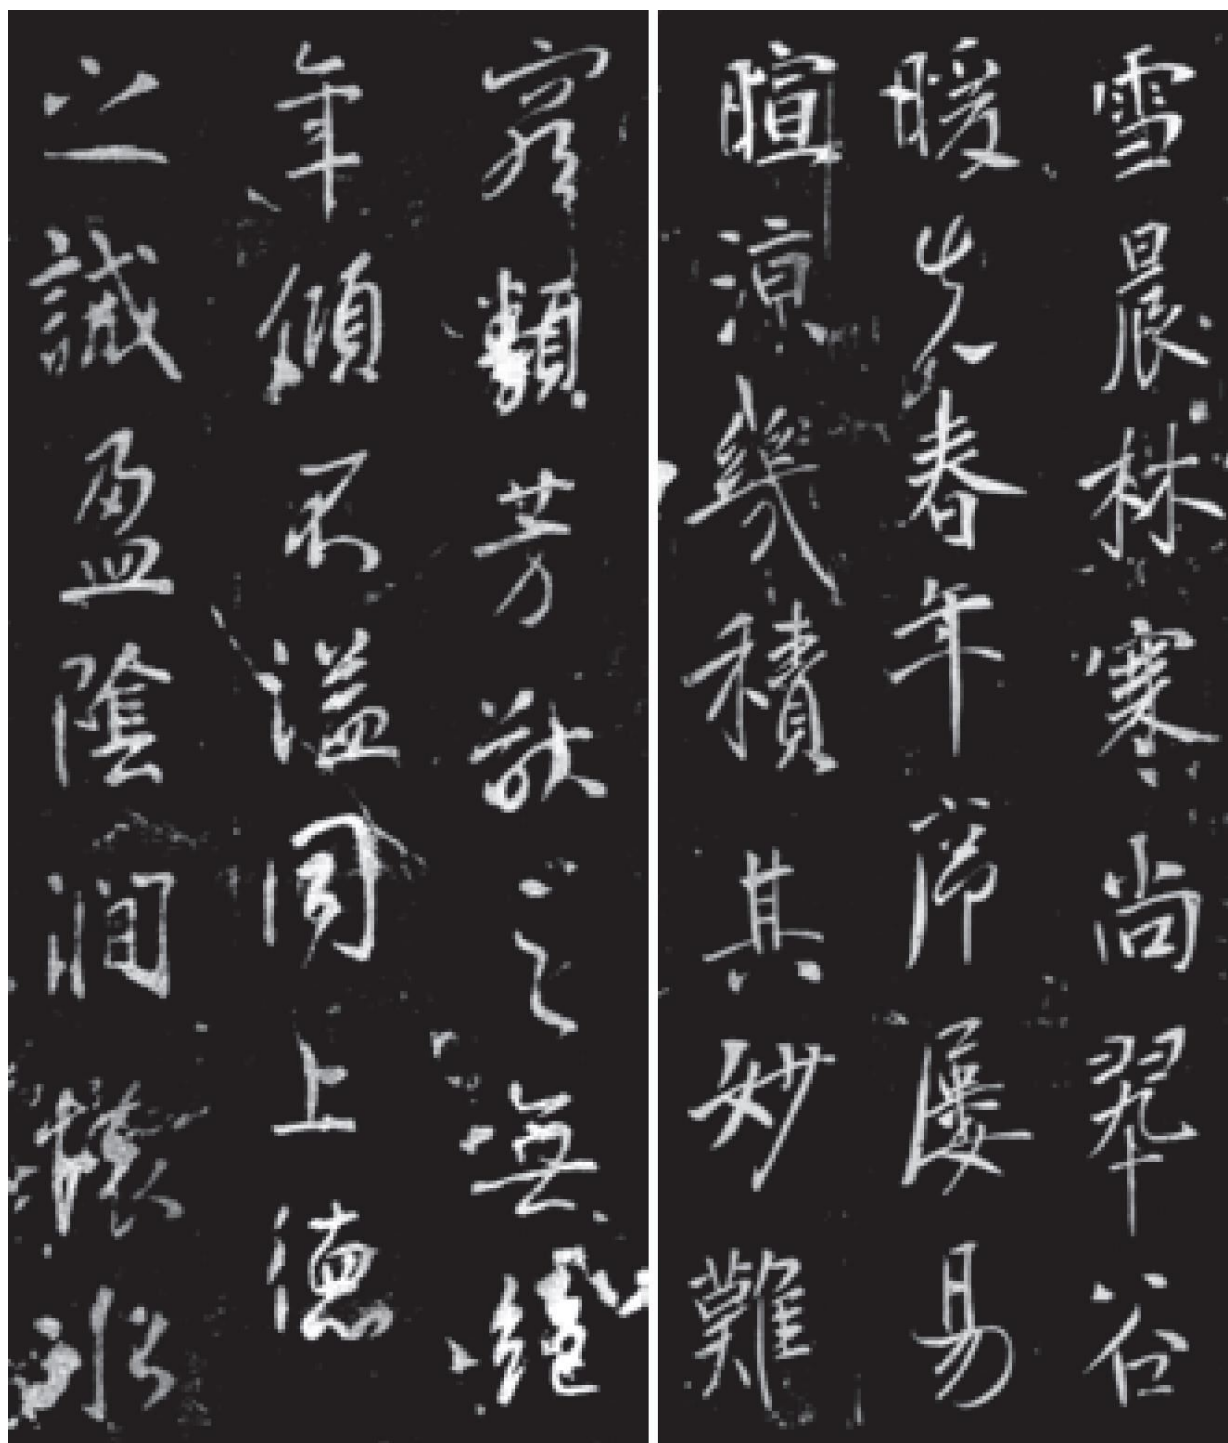 雪晨林寒尚翠谷
暖先春年序屢易
暄涼幾積其妙難
窮類芳猷之無絕
年傾不溢同上德
之誡盈陰澗懷冰